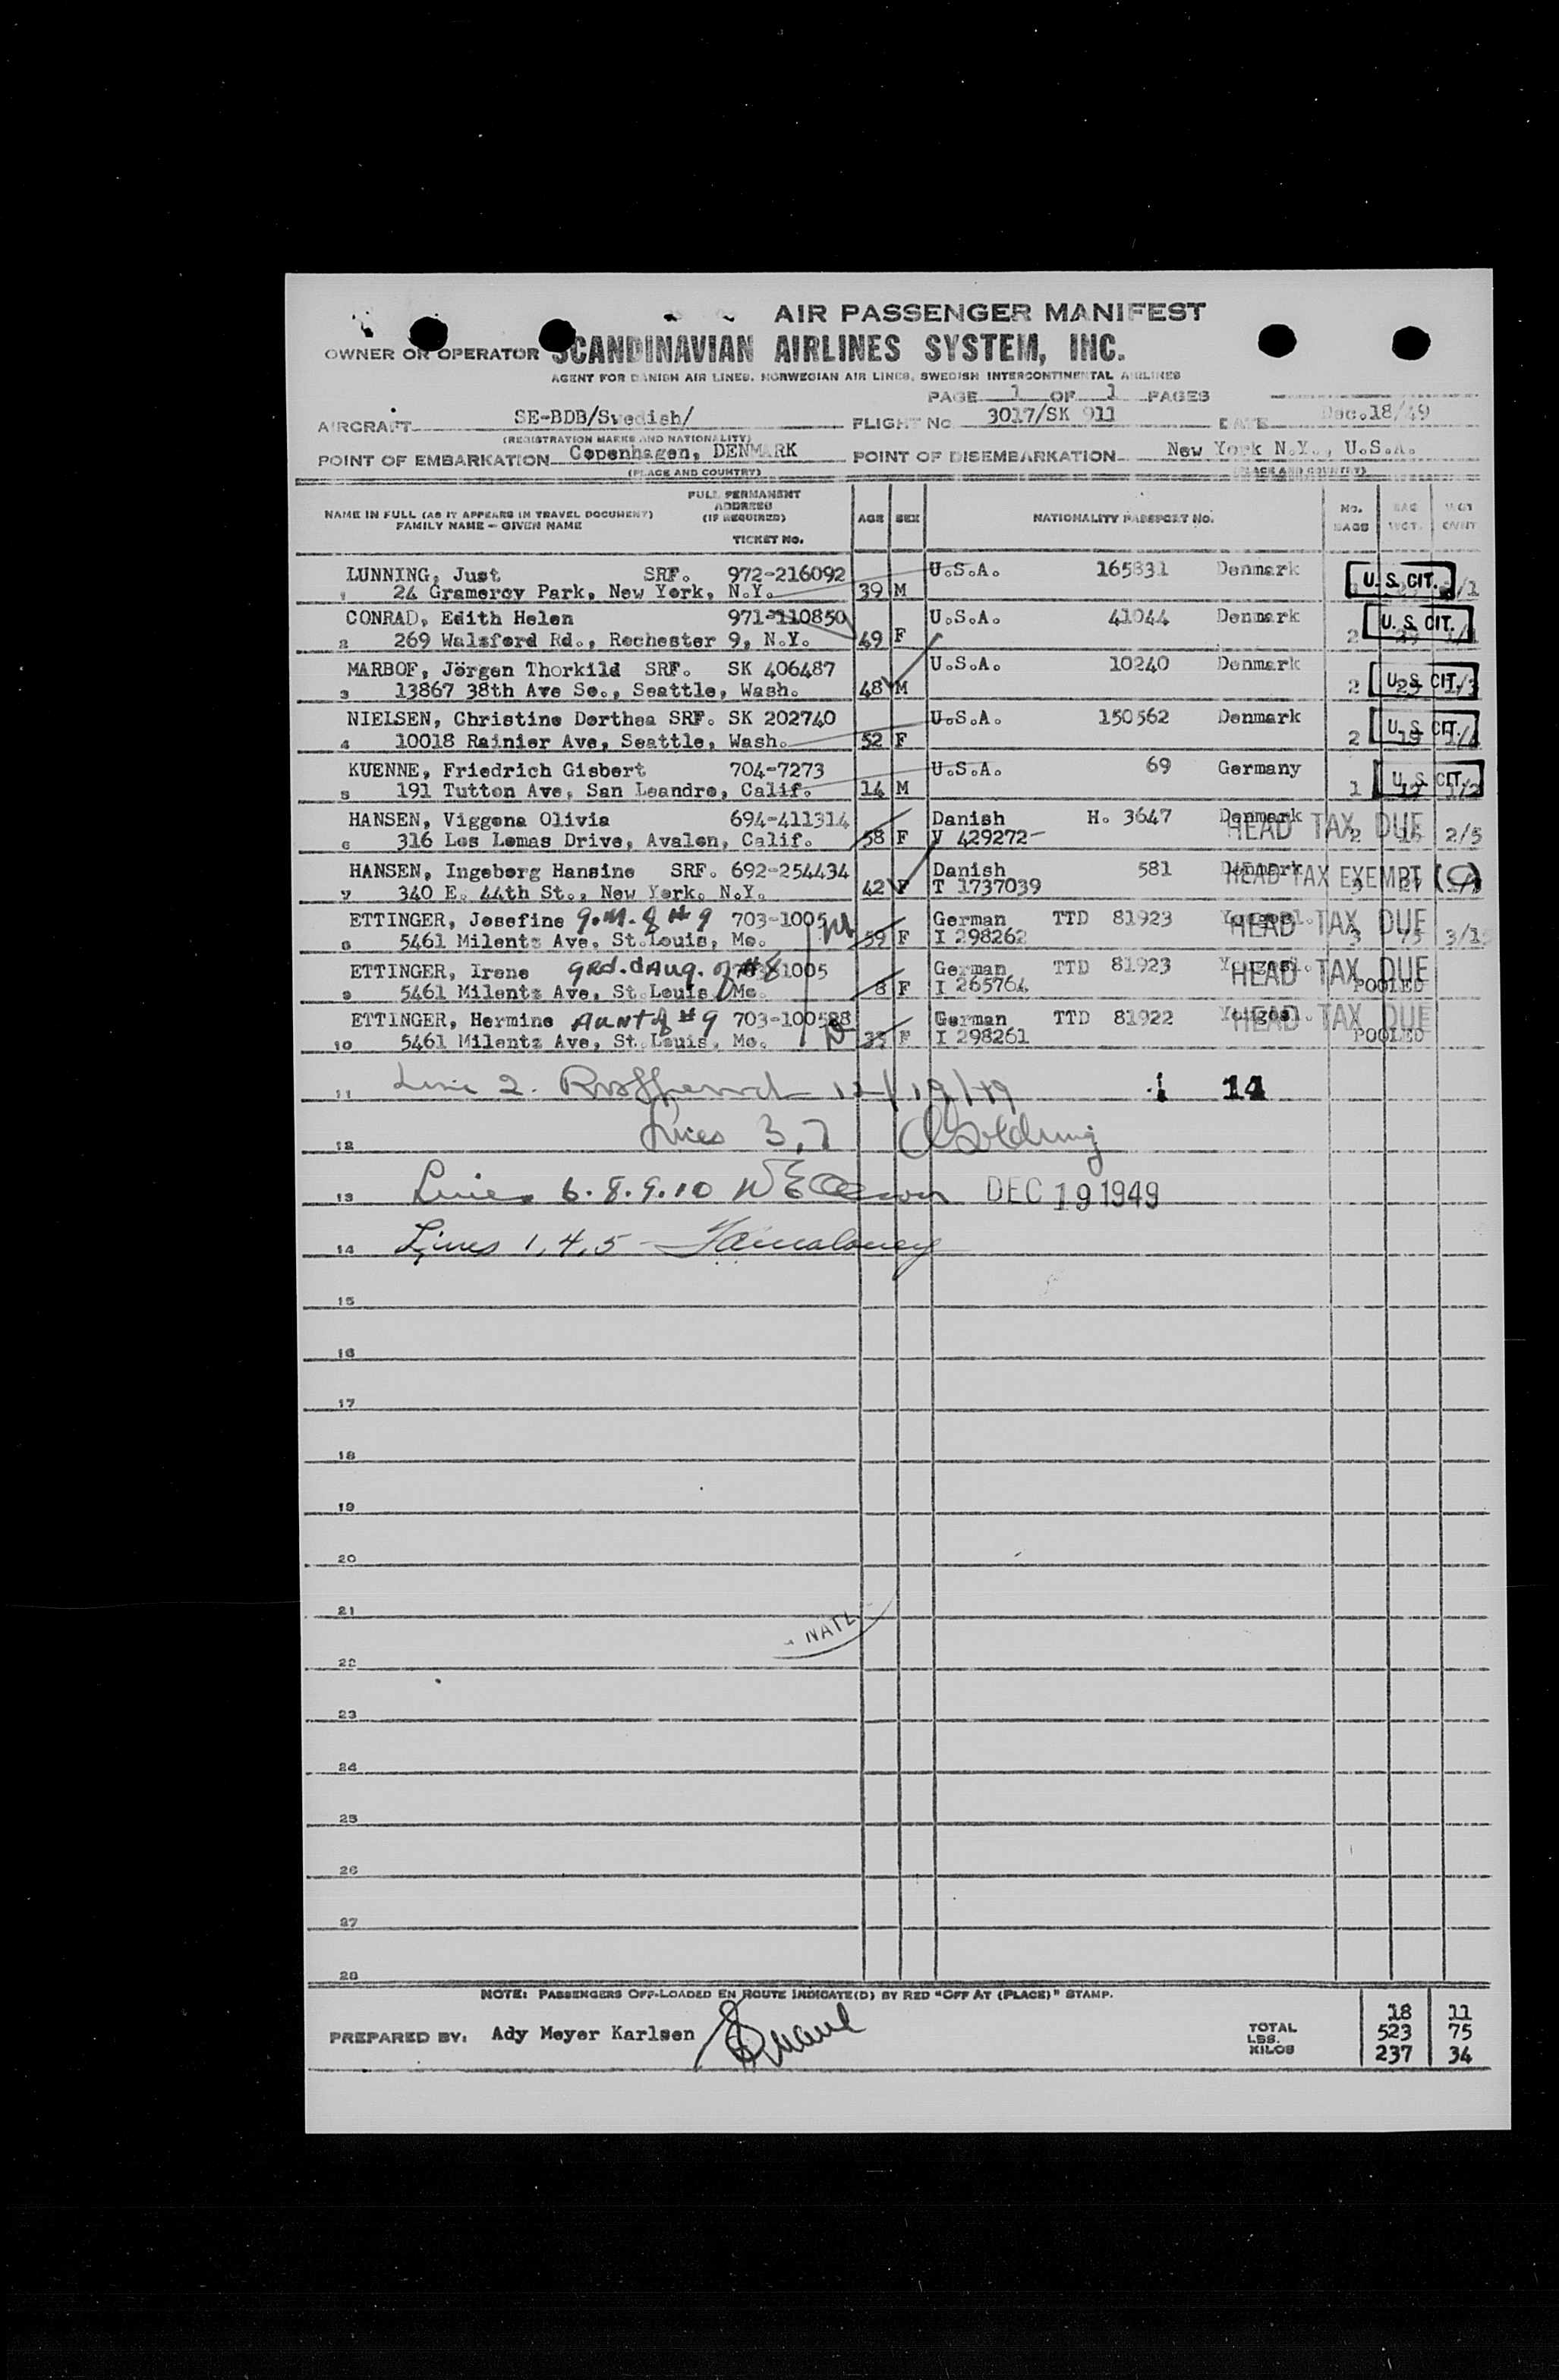 AIR PASSENGER MANIFEST
OWNER OR OPERATOR SCANDINAVIAN AIRLINES SYSTEM, INC.
AGENT FOR DANISH AIR LINES, NORWEGIAN AIR LINES, SWEDISH INTERCONTINENTAL AIRLINES
PAGE 1 OF 1 PAGES
AIRCRAFT SE-BDB/Swedish/ FLIGHT No. 3017/SK 911 DATE Dec.18/49
(REGISTRATION MARKS AND NATIONALITY)
POINT OF EMBARKATION Copenhagen, DENMARK POINT OF DISEMBARKATION New York N.Y., U.S.A.
(PLACE AND COUNTRY) (PLACE AND COUNTRY)
NAME IN FULL (AS IT APPEARS IN TRAVEL DOCUMENT) FULL PERMANENT ADDRESS (IF REQUIRED) AGE SEX NATIONALITY PASSPORT NO. NO. BAGS BAG WGT.
FAMILY NAME - GIVEN NAME TICKET NO.
LUNNING, Just SRF. 972-216092 U.S.A. 165831 Denmark U. S. CIT.
1 24 Gramercy Park, New York, N.Y. 39 M
CONRAD, Edith Helen 971-110850 U.S.A. 41044 Denmark U. S. CIT.
2 269 Walsford Rd., Rochester 9, N.Y. 49 F 2
MARBOF, Jörgen Thorkild SRF. SK 406487 U.S.A. 10240 Denmark U. S. CIT.
3 13867 38th Ave So., Seattle, Wash. 48 M 2
NIELSEN, Christine Dorthea SRF. SK 202740 U.S.A. 150562 Denmark U. S. CIT.
4 10018 Rainier Ave, Seattle, Wash. 52 F 2
KUENNE, Friedrich Gisbert 704-7273 U.S.A. 69 Germany U. S. CIT.
5 191 Tutton Ave, San Leandro, Calif. 14 M 1
HANSEN, Viggona Olivia 694-411314 Danish H. 3647 Denmark HEAD TAX DUE
6 316 Los Lomas Drive, Avalon, Calif. 58 F V 429272 2 2/5
HANSEN, Ingeborg Hansine SRF. 692-254434 Danish 581 Denmark HEAD TAX EXEMPT (C)
7 340 E. 44th St., New York. N.Y. 42 F T 1737039
ETTINGER, Josefine g.m. of #9 703-1005 German TTD 81923 Yougosl. HEAD TAX DUE
8 5461 Milentz Ave, St.Louis, Mo. 59 F I 298262 3
ETTINGER, Irene grd. daug. of #8 1005 German TTD 81923 Yougosl. HEAD TAX DUE
9 5461 Milentz Ave, St.Louis, Mo. 8 F I 265764 POOLED
ETTINGER, Hermine Aunt of #9 703-100588 German TTD 81922 Yougosl. HEAD TAX DUE
10 5461 Milentz Ave, St.Louis, Mo. 33 F I 298261 POOLED
11 Line 2. 12/19/49 14
12 Lines 3,7
13 Lines 6.8.9.10 DEC 19 1949
14 Lines 1,4,5
15
16
17
18
19
20
21
NATL
22
23
24
25
26
27
28
NOTE: PASSENGERS OFF-LOADED EN ROUTE INDICATE(D) BY RED "OFF AT (PLACE)" STAMP.
PREPARED BY: Ady Meyer Karlsen
TOTAL 18 11
LBS. 523 75
KILOS 237 34